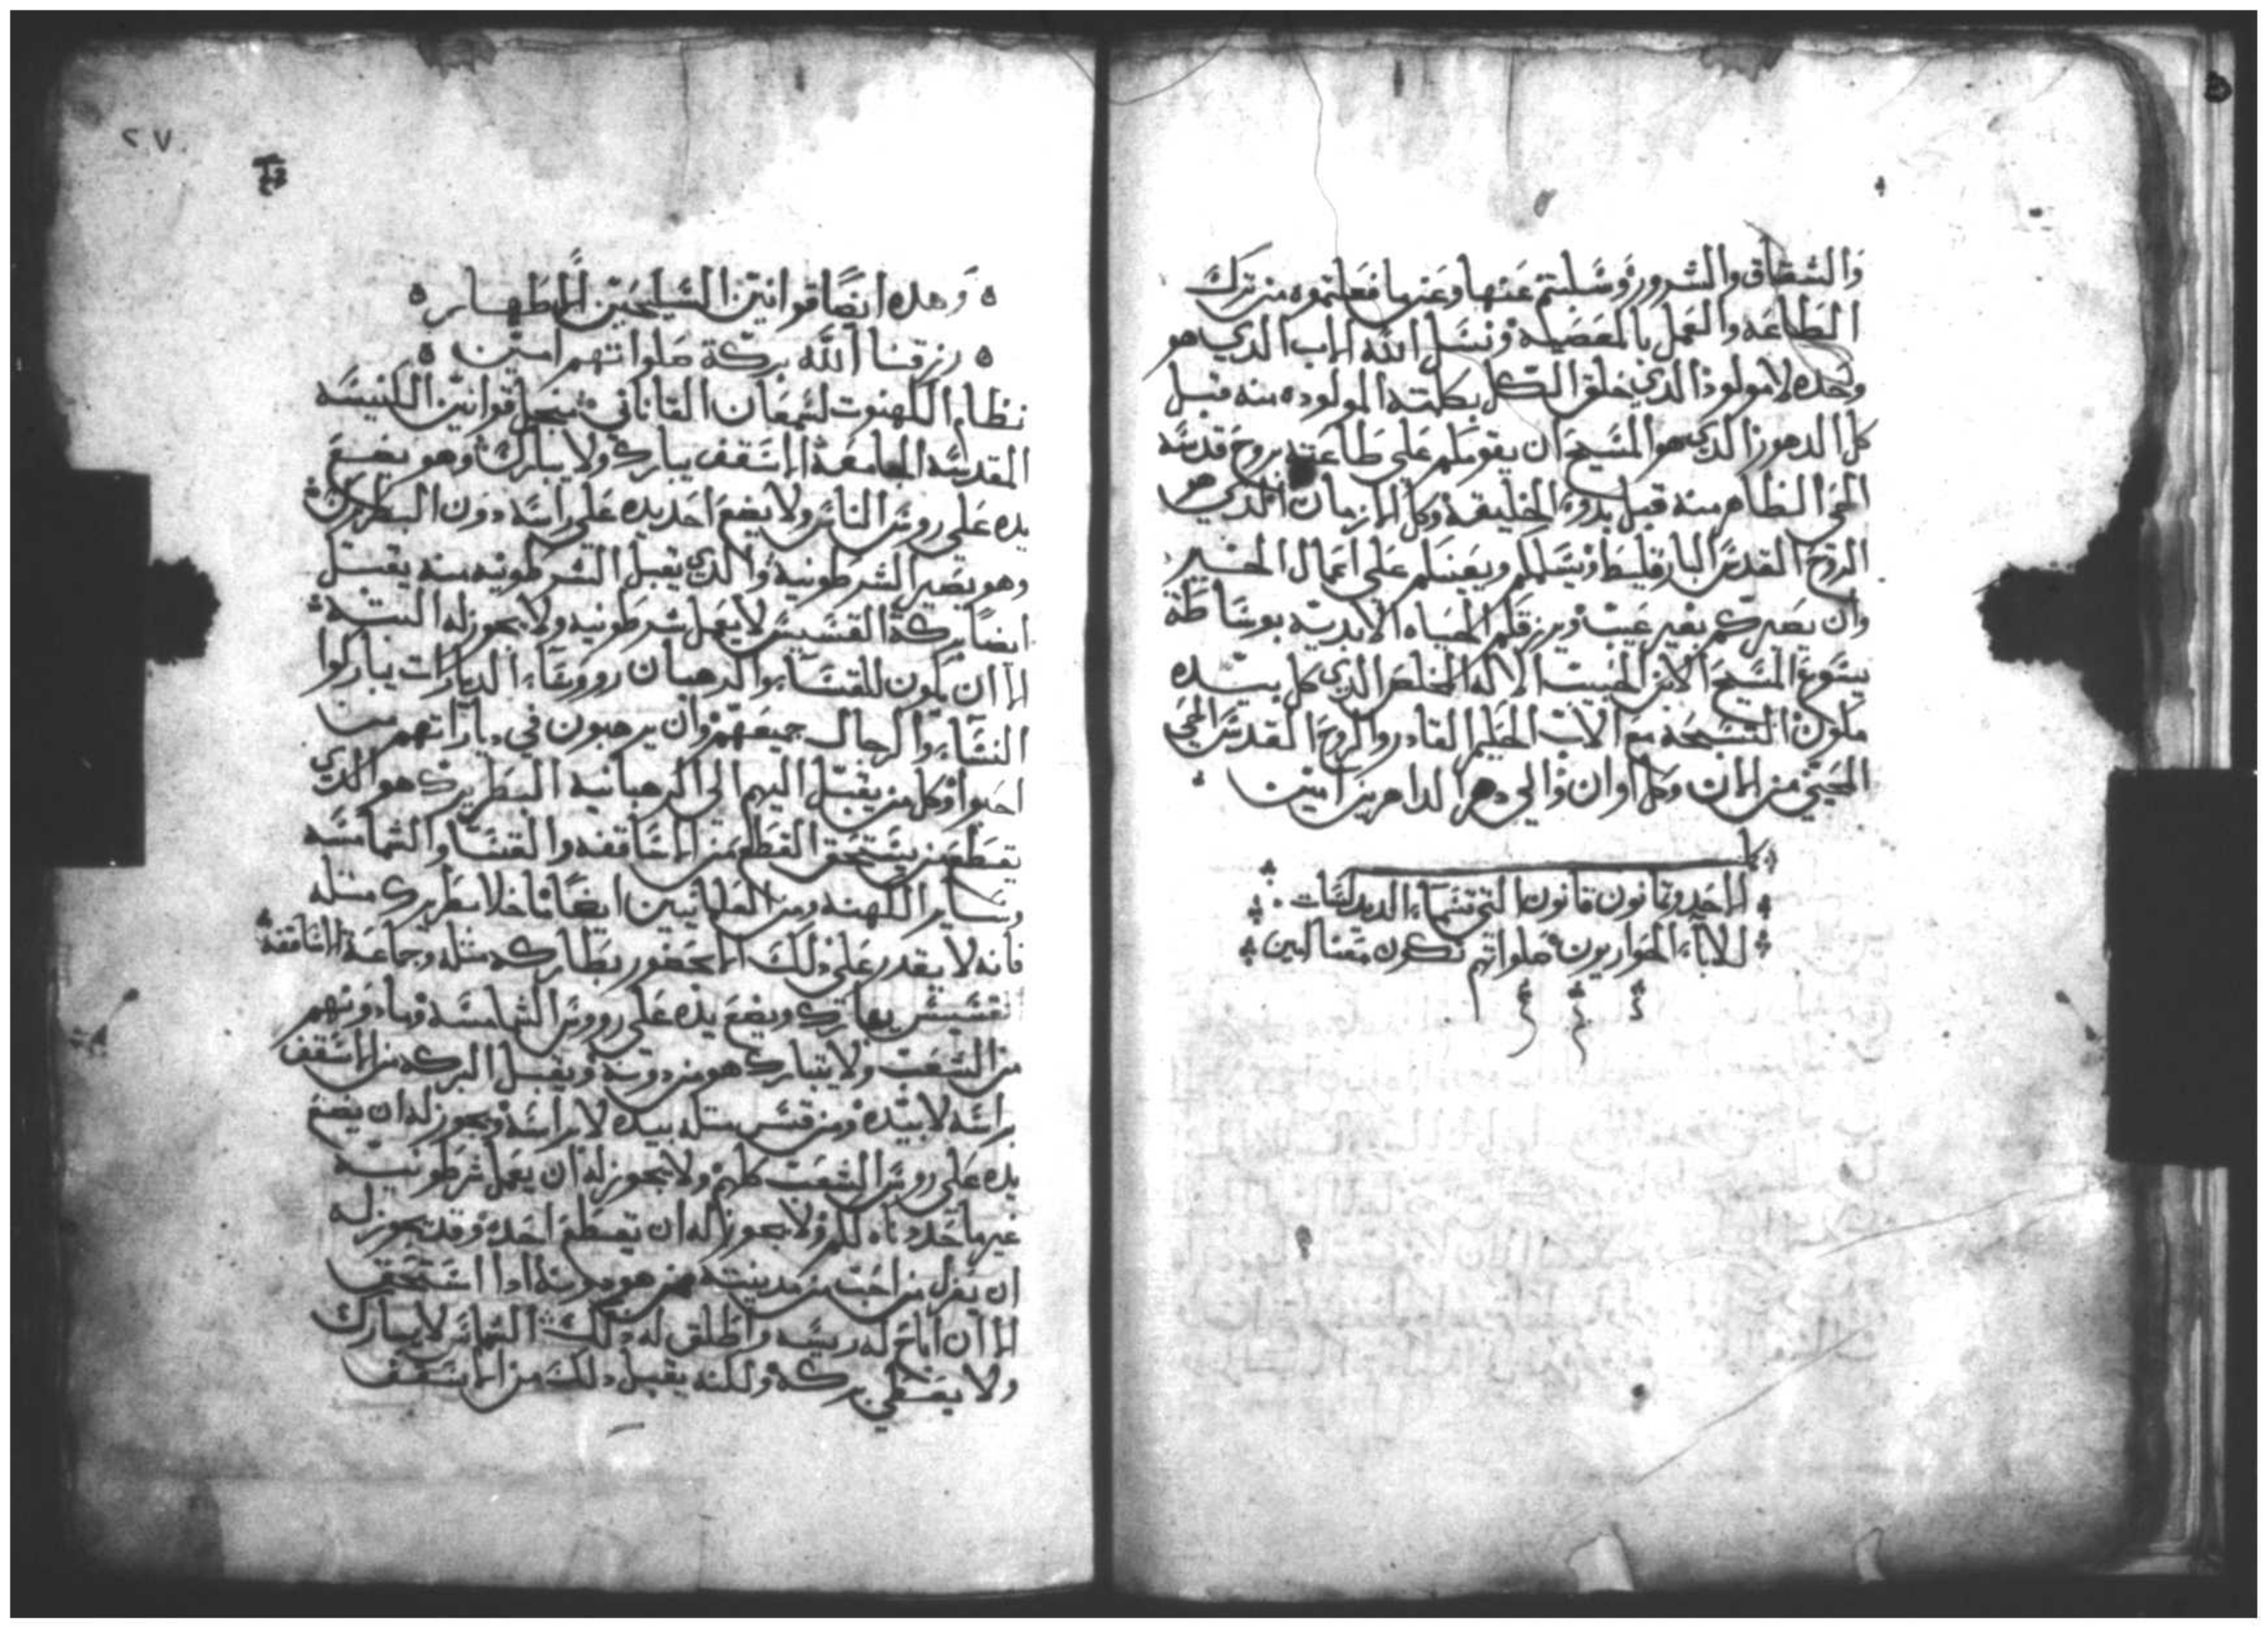 والشقاق والشرور وسليتم عنها وعنها فعلتموه من ترك
الطاعه والعمل بالمعصيه ونسل الله الاب الدي هو
وحده لا مولود الدي خلق الكل بكلمته المولوده منه قبل
كل الدهور الدي هو المسيح ان يقومكم على طاعته بروح قدسه
المحي الظاهر منه قبل بدو الخليقه وكل الازمان الدي هو
الروح القدس البارقليط ويسلمكم ويعينكم على اعمال الخير
وان يصيركم بغير عيب ويرزقكم الحياه الابديه بوساطة
يسوع المسيح الابن الحبيب الاله المخلص الدي كل بيده
ملكوت التسبحه مع الاب الحليم القادر والروح القدس المحي
المحيي من الان وكل اوان والي دهر الداهرين امين
كمل
الاحد وتمانون قانون التي تسما الديدلسات
للاباء الحواريون صلواتهم تكون معنا امين
٢٧
وهده ايضا قوانين السليحين الاطهار
رزقنا الله بركة صلواتهم امين
نظام الكهنوت لشمعان القاناني من اجل قوانين الكنيسه
المقدسه الجامعة الاسقف يبارك ولا يبارك وهو يضع
يده على رووس الناس ولا يضع احد يده على راسه دون البطريرك
وهو يصير الشرطونيه والدي يقبل الشرطونيه منه يقبل
ايضا بركة القسيس لا يعمل شرطونيه ولا يجوز له البته
الا ان يكون للقسا والرهبان رووسا الديارات يباركوا
النسا والرجال جميعهم وان يرهبون في دياراتهم من
احبوا وكل من يقبل اليهم الى الرهبانيه البطريرك هو الدي
يقطع من يستحق القطع من الاساقفه والقسا والشمامسه
وساير الكهنه ومن العلمانيين ايضا ما خلا بطريرك مثله
فانه لا يقدر على دلك الا بحضور بطاركه مثله وجماعة الاساقفة
القسيس يبارك ويضع يده على رووس الشمامسه وما دونهم
من الشعب ولا يتبارك هو من دونه ويقبل البركه من الاسقف
براسه لا بيده ومن قس مثله بيده لا براسه ويجوز له ان يضع
يده على رووس الشعب كلهم ولا يجوز له ان يعمل شرطونيه
غير ما حددناه لكم ولا يجوز له ان يقطع احد وقد يجوز له
ان يعزل من احب من مدينته ممن هو دونه ادا استحق
الا ان اباح له ريسه واطلق له دلك الشماس لا يبارك
ولا يعطي بركه ولكنه يقبل دلك من الاسقف